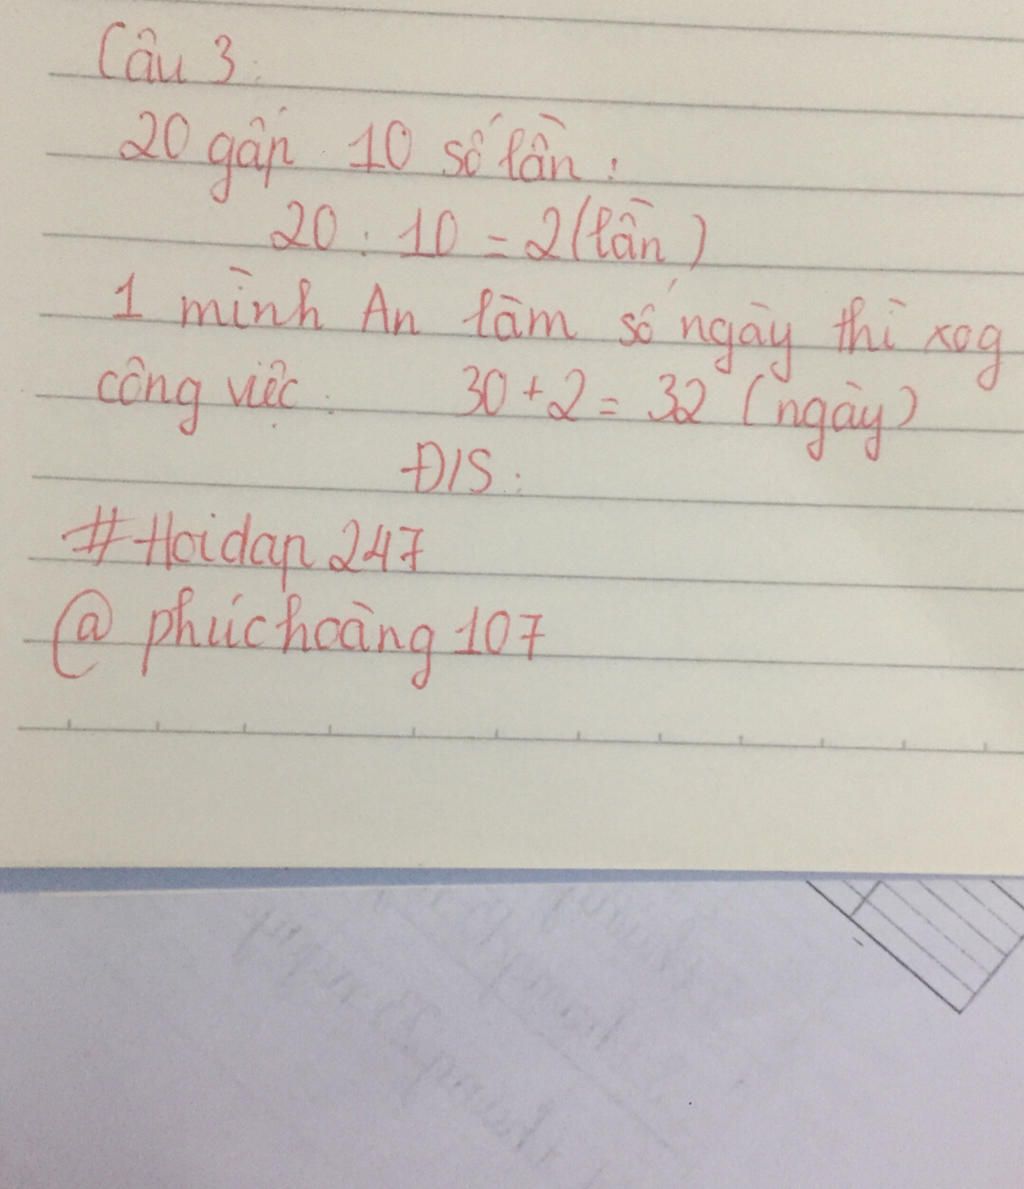 Câu 3:
20 gấp 10 số lần:
20 : 10 = 2 (lần)
1 mình An làm số ngày thì xog
công việc: 30 + 2 = 32 (ngày)
Đ/S:
#Hoidap247
@phúchoàng107